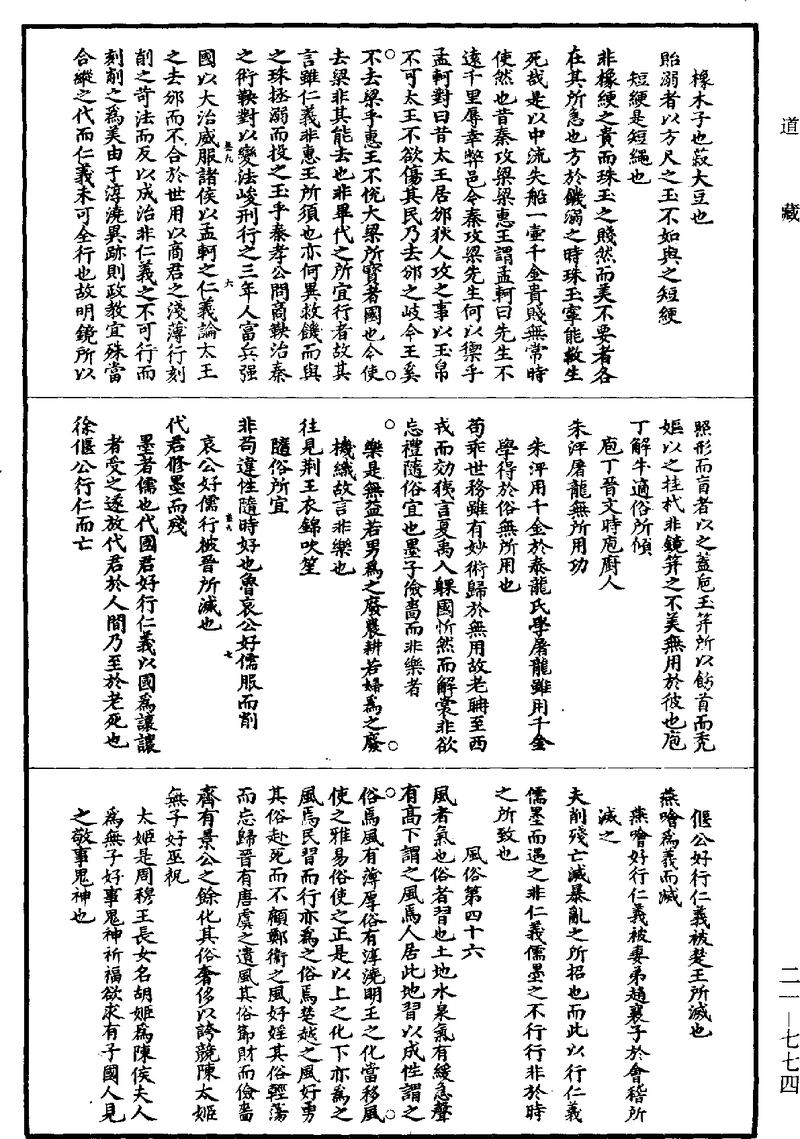 道藏
橡木子也菽大豆也
貽溺者以方尺之玉不如與之短綆
短綆是短繩也
非橡綆之貴而珠玉之賤然而美不要者各
在其所急也方於饑溺之時珠玉寧能救生
死哉是以中流失船一壷千金貴賤無常時
使然也昔秦攻梁梁惠王謂孟軻曰先生不
遠千里辱幸弊邑今秦攻梁先生何以禦乎
孟軻對曰昔太王居邠狄人攻之事以玉帛
不可太王不欲傷其民乃去邠之岐今王奚
不去梁乎惠王不悅大梁所寳者國也今使
去梁非其能去也非畢代之所宜行者故其
言雖仁義非惠王所須也亦何異救饑而與
之珠拯溺而投之玉乎秦孝公問商鞅治秦
之術鞅對以變法峻刑行之三年人富兵强
國以大治威服諸侯以孟軻之仁義論太王
之去邠而不合於世用以商君之淺薄行刻
削之苛法而反以成治非仁義之不可行而
刻削之爲美由于淳澆異跡則政教宜殊當
合縱之代而仁義未可全行也故明鏡所以
照形而盲者以之蓋卮玉笄所以飾首而秃
嫗以之挂杙非鏡笄之不美無用於彼也庖
丁解牛適俗所傾
庖丁晉文時庖廚人
朱泙屠龍無所用功
朱泙用千金於泰龍氏學屠龍雖用千金
學得於俗無所用也
苟乖世務雖有妙術歸於無用故老聃至西
戎而効狻言夏禹入躶國忻然而解裳非欲
忘禮隨俗宜也墨子儉嗇而非樂者
樂是無益若男爲之廢農耕若婦爲之廢
機織故言非樂也
往見荆王衣錦吹笙
隨俗所宜
非苟違性隨時好也魯哀公好儒服而削
哀公好儒行被晉所滅也
代君修墨而殘
墨者儒也代國君好行仁義以國爲讓讓
者受之遂放代君於人間乃至於老死也
徐偃公行仁而亡
偃公好行仁義被楚王所滅也
燕噲爲義而滅
燕噲好行仁義被妻弟趙襄子於會稽所
滅之
夫削殘亡滅暴亂之所招也而此以行仁義
儒墨而遇之非仁義儒墨之不行行非於時
之所致也
風俗第四十六
風者氣也俗者習也土地水泉氣有緩急聲
有高下謂之風焉人居此地習以成性謂之
俗焉風有薄厚俗有淳澆明王之化當移風
使之雅易俗使之正是以上之化下亦爲之
風焉民習而行亦爲之俗焉楚越之風好勇
其俗赴死而不顧鄭衛之風好婬其俗輕蕩
而忘歸晉有唐虞之遺風其俗節財而儉嗇
齊有景公之餘化其俗奢侈以誇競陳太姬
無子好巫祝
太姬是周穆王長女名胡姬爲陳侯夫人
爲無子好事鬼神祈福欲求有子國人見
之敬事鬼神也
二一—七七四